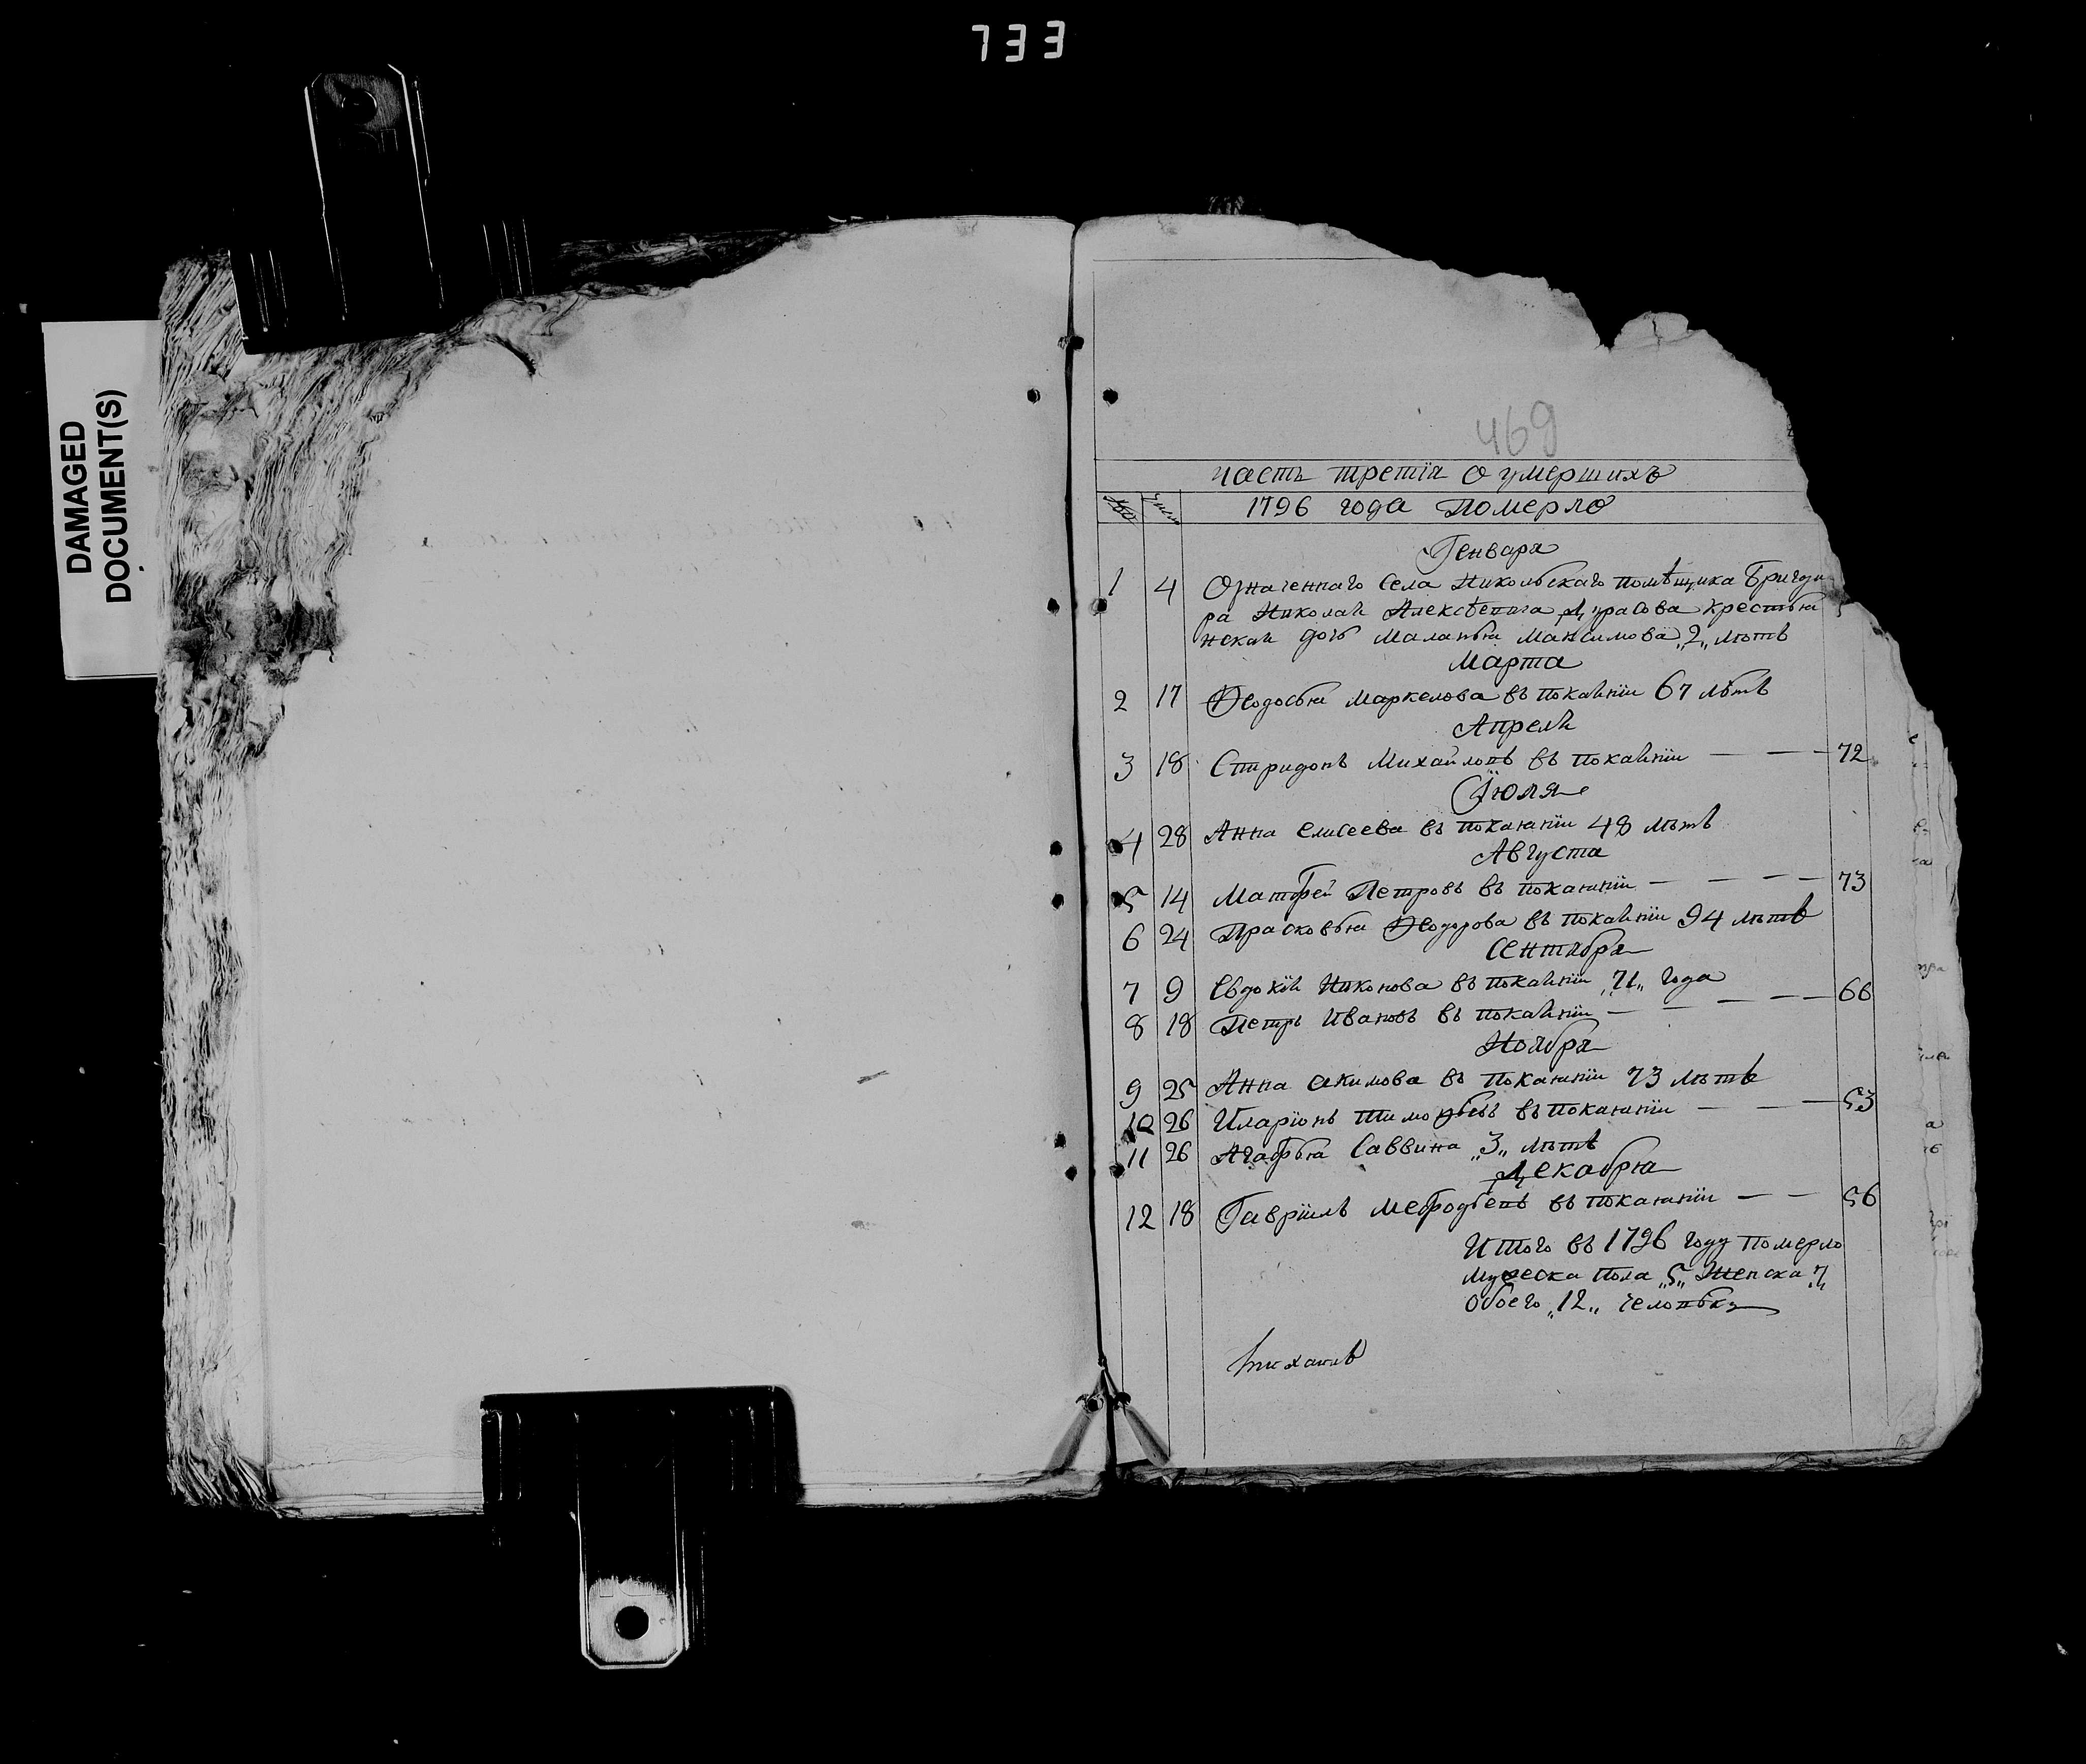 733
DAMAGED
DOCUMENT(S)
469
часть третїя о умершихъ
число
1796 года померло
Генваря
1 4 Означеннаго села Никольскаго помѣщика Бригади
ра Николая Алексѣевича Дурасова крестья
нская дочь Маланья Максимова „2„ лѣтъ
Марта
2 17 Ѳеодосья Маркелова въ покаянїи 67 лѣтъ
Апреля
3 18 Спиридонъ Михайловъ въ покаянїи — — — 72
Їюля
4 28 Анна Елисеева въ покаянїи 48 лѣтъ
Августа
5 14 Матфей Петровъ въ покаянїи — — — — 73
6 24 Прасковья Ѳеодорова въ покаянїи 94 лѣтъ
Сентября
7 9 Евдокїя Никонова въ покаянїи „71„ года
8 18 Петръ Ивановъ въ покаянїи — — — — — 66
Ноября
9 25 Анна Акимова въ покаянїи 73 лѣтъ
10 26 Иларїонъ Тимофеевъ въ покаянїи — — — 53
11 26 Агафья Саввина „3„ лѣтъ
Декабря
12 18 Гаврїилъ Мефодьевъ въ покаянїи — — 56
Итого въ 1796 году померло
мужеска пола „5„ женска „7„
обоего „12„ человѣкъ